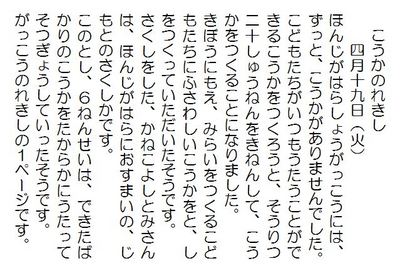 こうかのれきし
四月十九日（火）
ほんじがはらしょうがっこうには、
ずっと、こうかがありませんでした。
こどもたちがいつもうたうことがで
きるこうかをつくろうと、そうりつ
二十しゅうねんをきねんして、こう
かをつくることになりました。
きぼうにもえ、みらいをつくるこど
もたちにふさわしいこうかをと、し
をつくっていただいたそうです。
さくしをした、かねこよしとみさん
は、ほんじがはらにおすまいの、じ
もとのさくしかです。
このとし、６ねんせいは、できたば
かりのこうかをたからかにうたって
そつぎょうしていったそうです。
がっこうのれきしの１ページです。